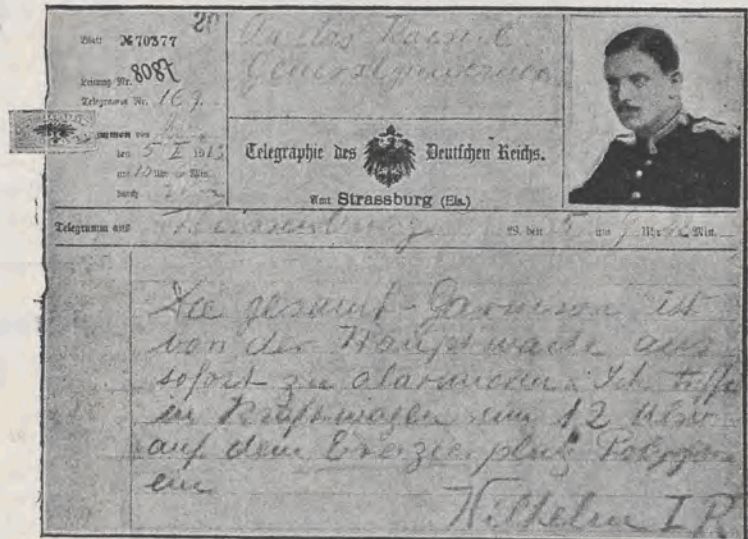 Blatt № 70377
20
Leitung Nr. 8087
Telegramm Nr. 167.
den 5 II 1913
um 10 Uhr Min.
durch
An das Kaiserl.
Telegraphie des Deutschen Reichs.
Amt Strassburg (Els.)
Telegramm aus 19. den 5 um 9 Uhr Min.
Die gesamt-Garnison ist
von der Hauptwache aus
sofort zu alarmieren. Ich treffe
im Kraftwagen um 12 Uhr
auf dem Exerzierplatz Polygon
ein
Wilhelm I R